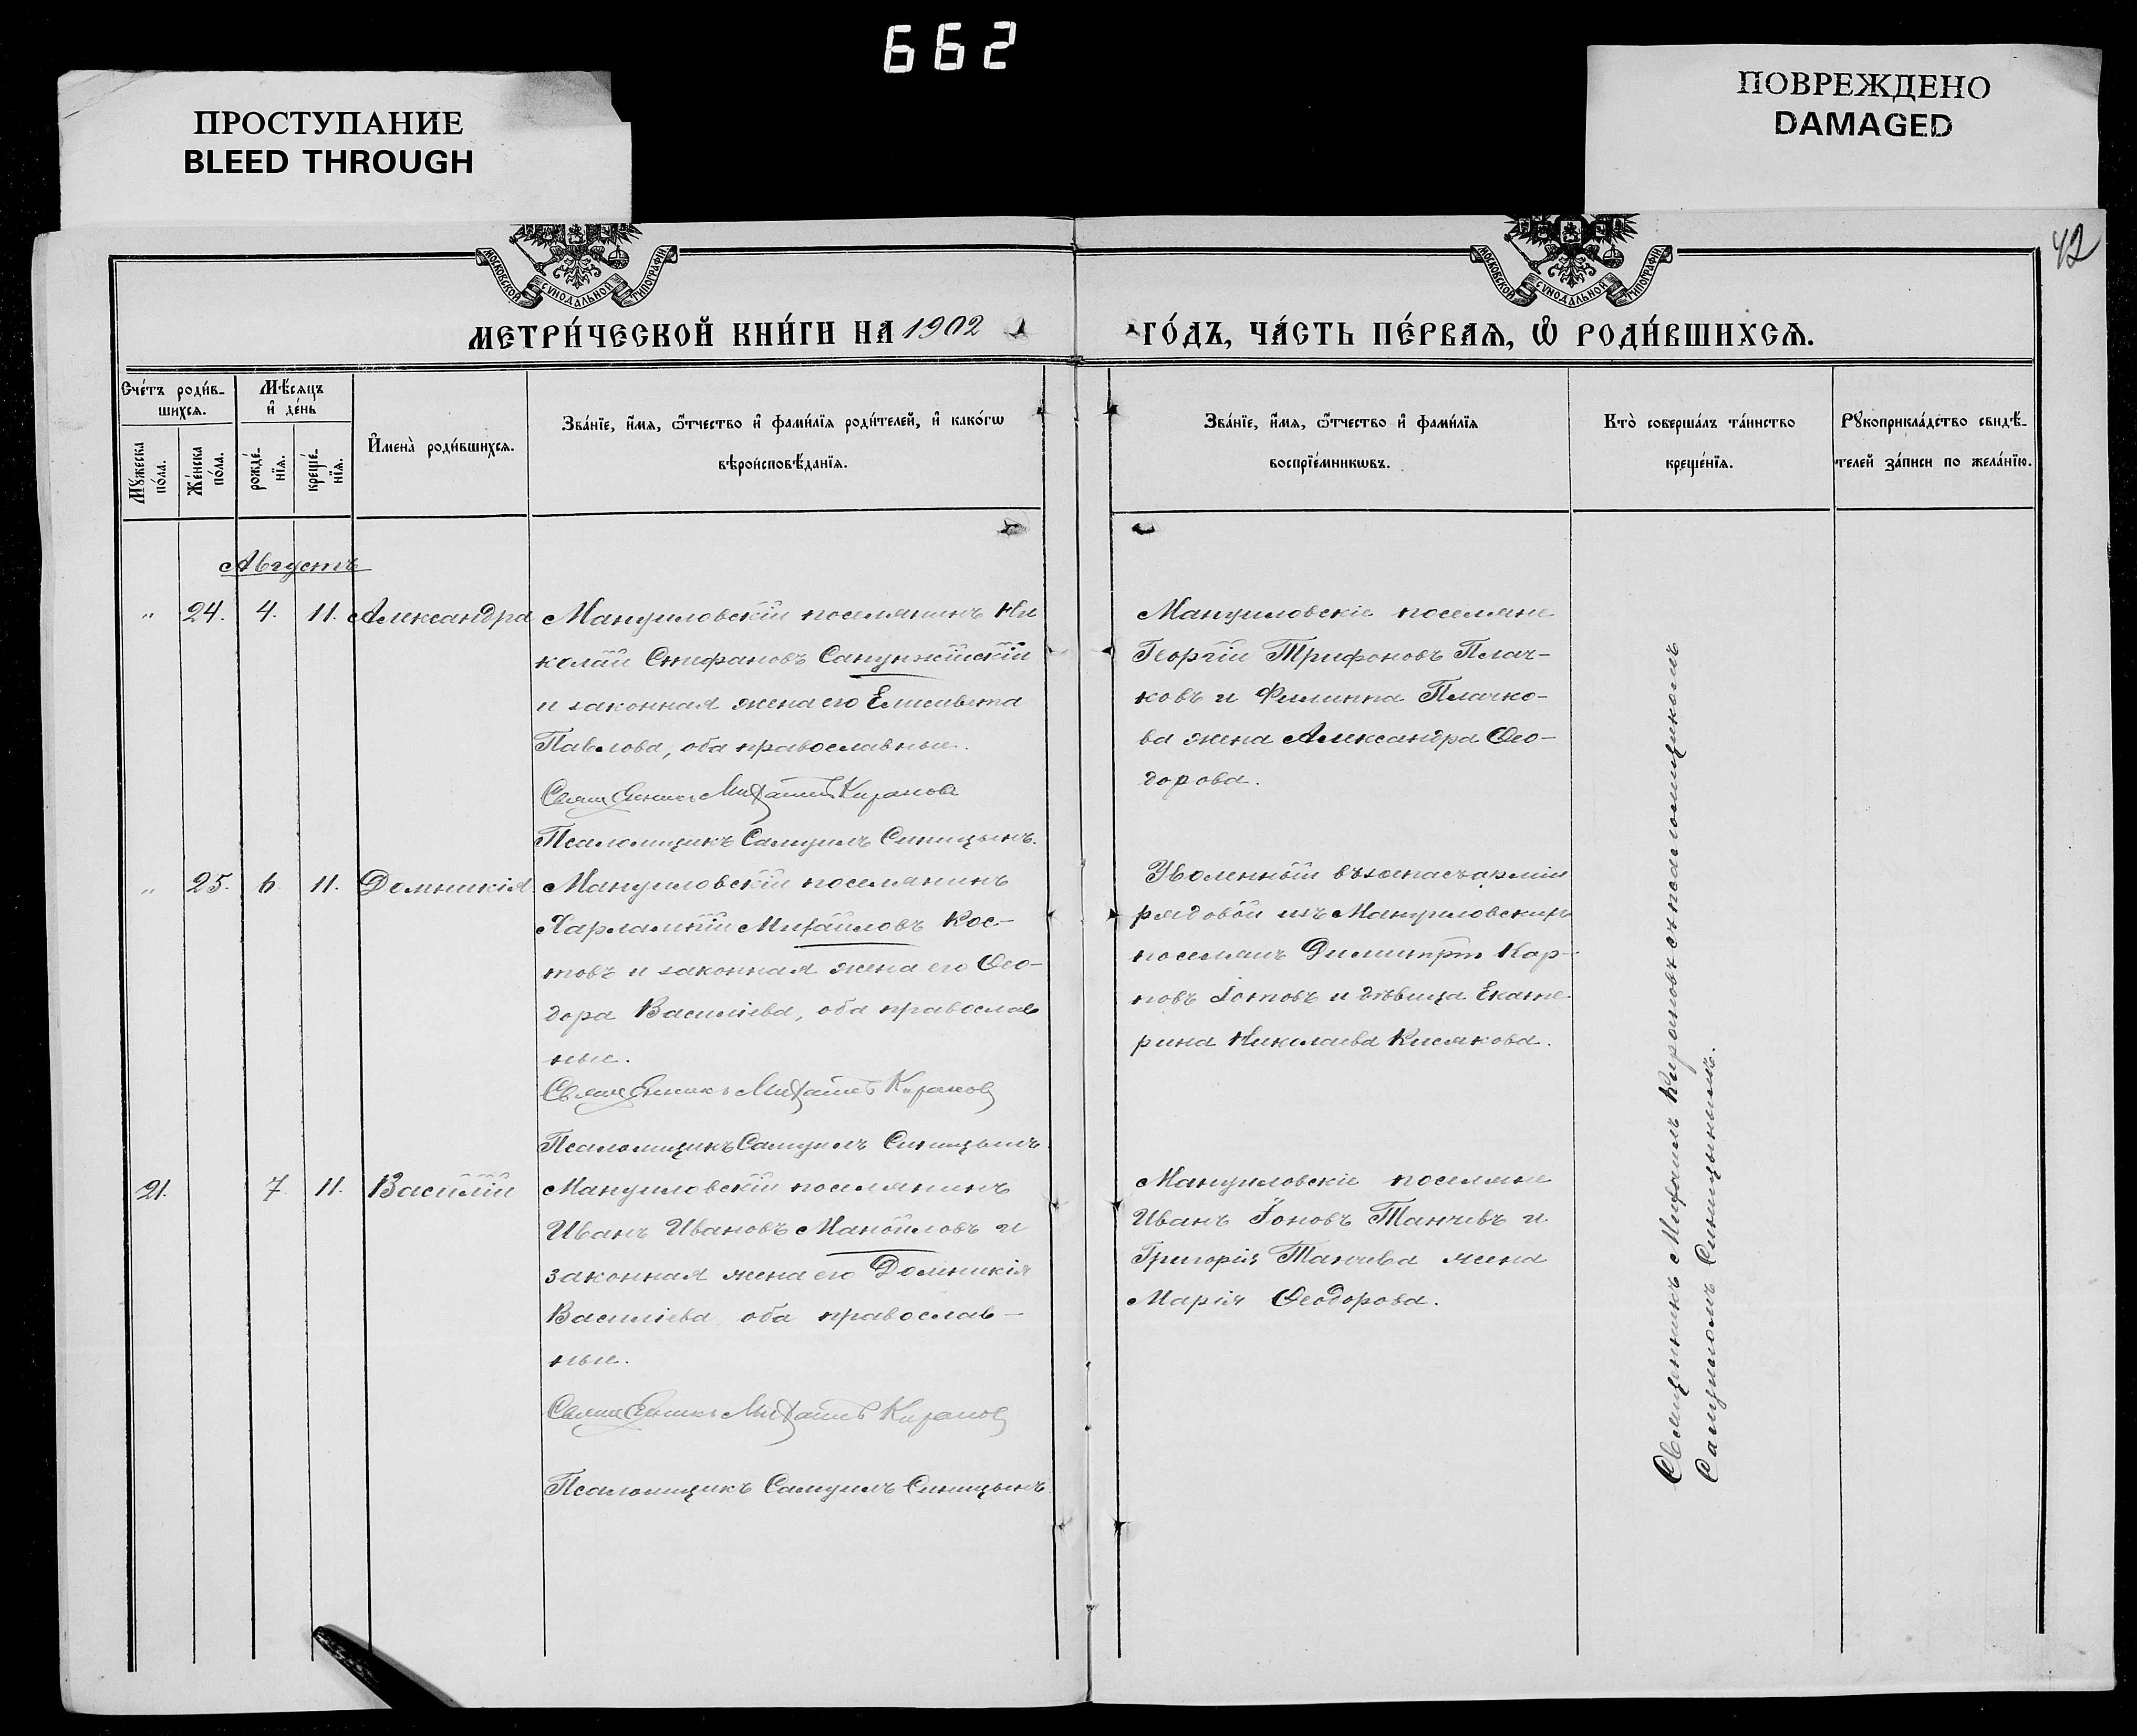 662
ПРОСТУПАНИЕ
BLEED THROUGH
ПОВРЕЖДЕНО
DAMAGED
42
МОСКОВСКОЙ СУНОДАЛЬНОЙ ТИПОГРАФІИ
МОСКОВСКОЙ СУНОДАЛЬНОЙ ТИПОГРАФІИ
МЕТРИ́ЧЕСКОЙ КНИ́ГИ НА 1902
ГО́ДЪ, ЧА́СТЬ ПЕ́РВАѦ, Ѡ҆ РОДИ́ВШИХСѦ.
Сче́тъ роди́в-
шихсѧ.
Мꙋ́жеска
по́ла.
Же́нска
по́ла.
Мѣ́сѧцъ
и҆ де́нь
рожде́-
нїѧ.
креще́-
нїѧ.
И҆мена̀ роди́вшихсѧ.
Зва́нїе, и҆́мѧ, ѻ҆́тчество и҆ фами́лїѧ роди́телей, и҆ како́гѡ
вѣроисповѣ́данїѧ.
Зва́нїе, и҆́мѧ, ѻ҆́тчество и҆ фами́лїѧ
воспрїе́мникѡвъ.
Кто̀ соверша́лъ та́инство
креще́нїѧ.
Рꙋкоприкла́дство свидѣ́-
телей за́писи по жела́нїю.
Августъ
" 24. 4. 11. Александра
Мануиловскій поселянинъ Ни
колай Стефановъ Сапунжійскій
и законная жена его Елисавета
Павлова, оба православные.
Священникъ Михаилъ Кирановъ
Псаломщикъ Самуилъ Синицынъ.
Мануиловскіе поселяне
Георгій Трифоновъ Плач-
ковъ и Филиппа Плачко-
ва жена Александра Ѳео-
дорова.
" 25. 6 11. Домникія
Мануиловскій поселянинъ
Харлампій Михайловъ Кос-
товъ и законная жена его Ѳео-
дора Василіева, оба православ
ные.
Священникъ Михаилъ Кирановъ
Псаломщикъ Самуилъ Синицынъ.
Уволенный въ запасъ арміи
рядовой изъ Мануиловскихъ
поселянъ Димитрій Кар-
повъ Іотовъ и дѣвица Екате-
рина Николаева Кисякова.
21. 7 11. Василій
Мануиловскій поселянинъ
Иванъ Ивановъ Манойловъ и
законная жена его Домникія
Василіева оба православ-
ные.
Священникъ Михаилъ Кирановъ
Псаломщикъ Самуилъ Синицынъ
Мануиловскіе поселяне
Иванъ Іоновъ Танчевъ и
Григорія Танчева жена
Марія Ѳеодорова.
Священникъ Михаилъ Кирановъ съ псаломщикомъ
Самуиломъ Синицынымъ.